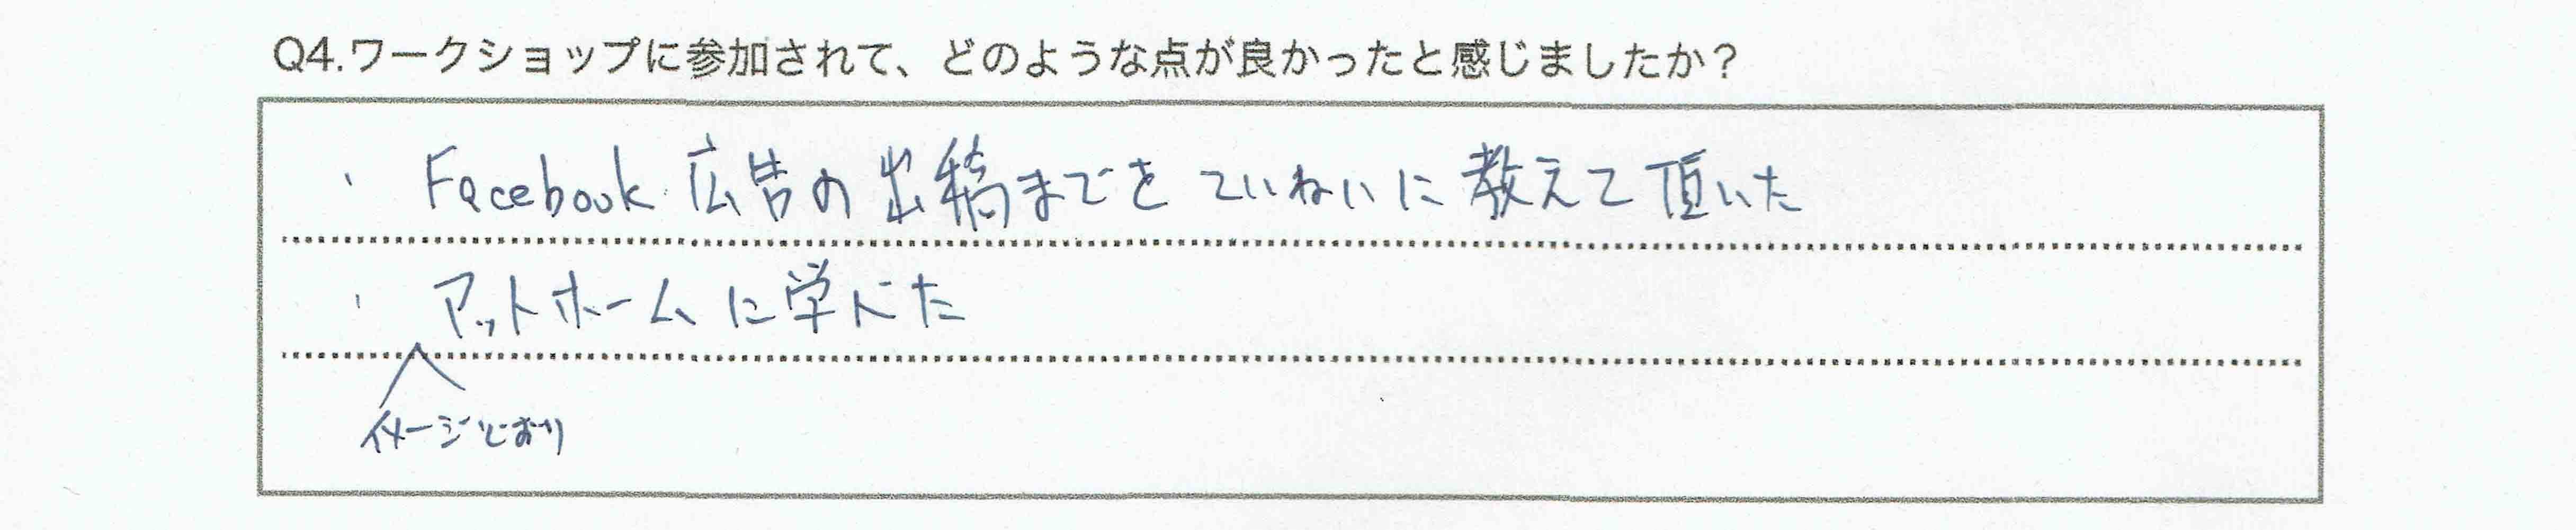 Q4.ワークショップに参加されて、どのような点が良かったと感じましたか?
・ Facebook 広告の出稿までをていねいに教えて頂いた
・ アットホームに学べた
イメージどおり